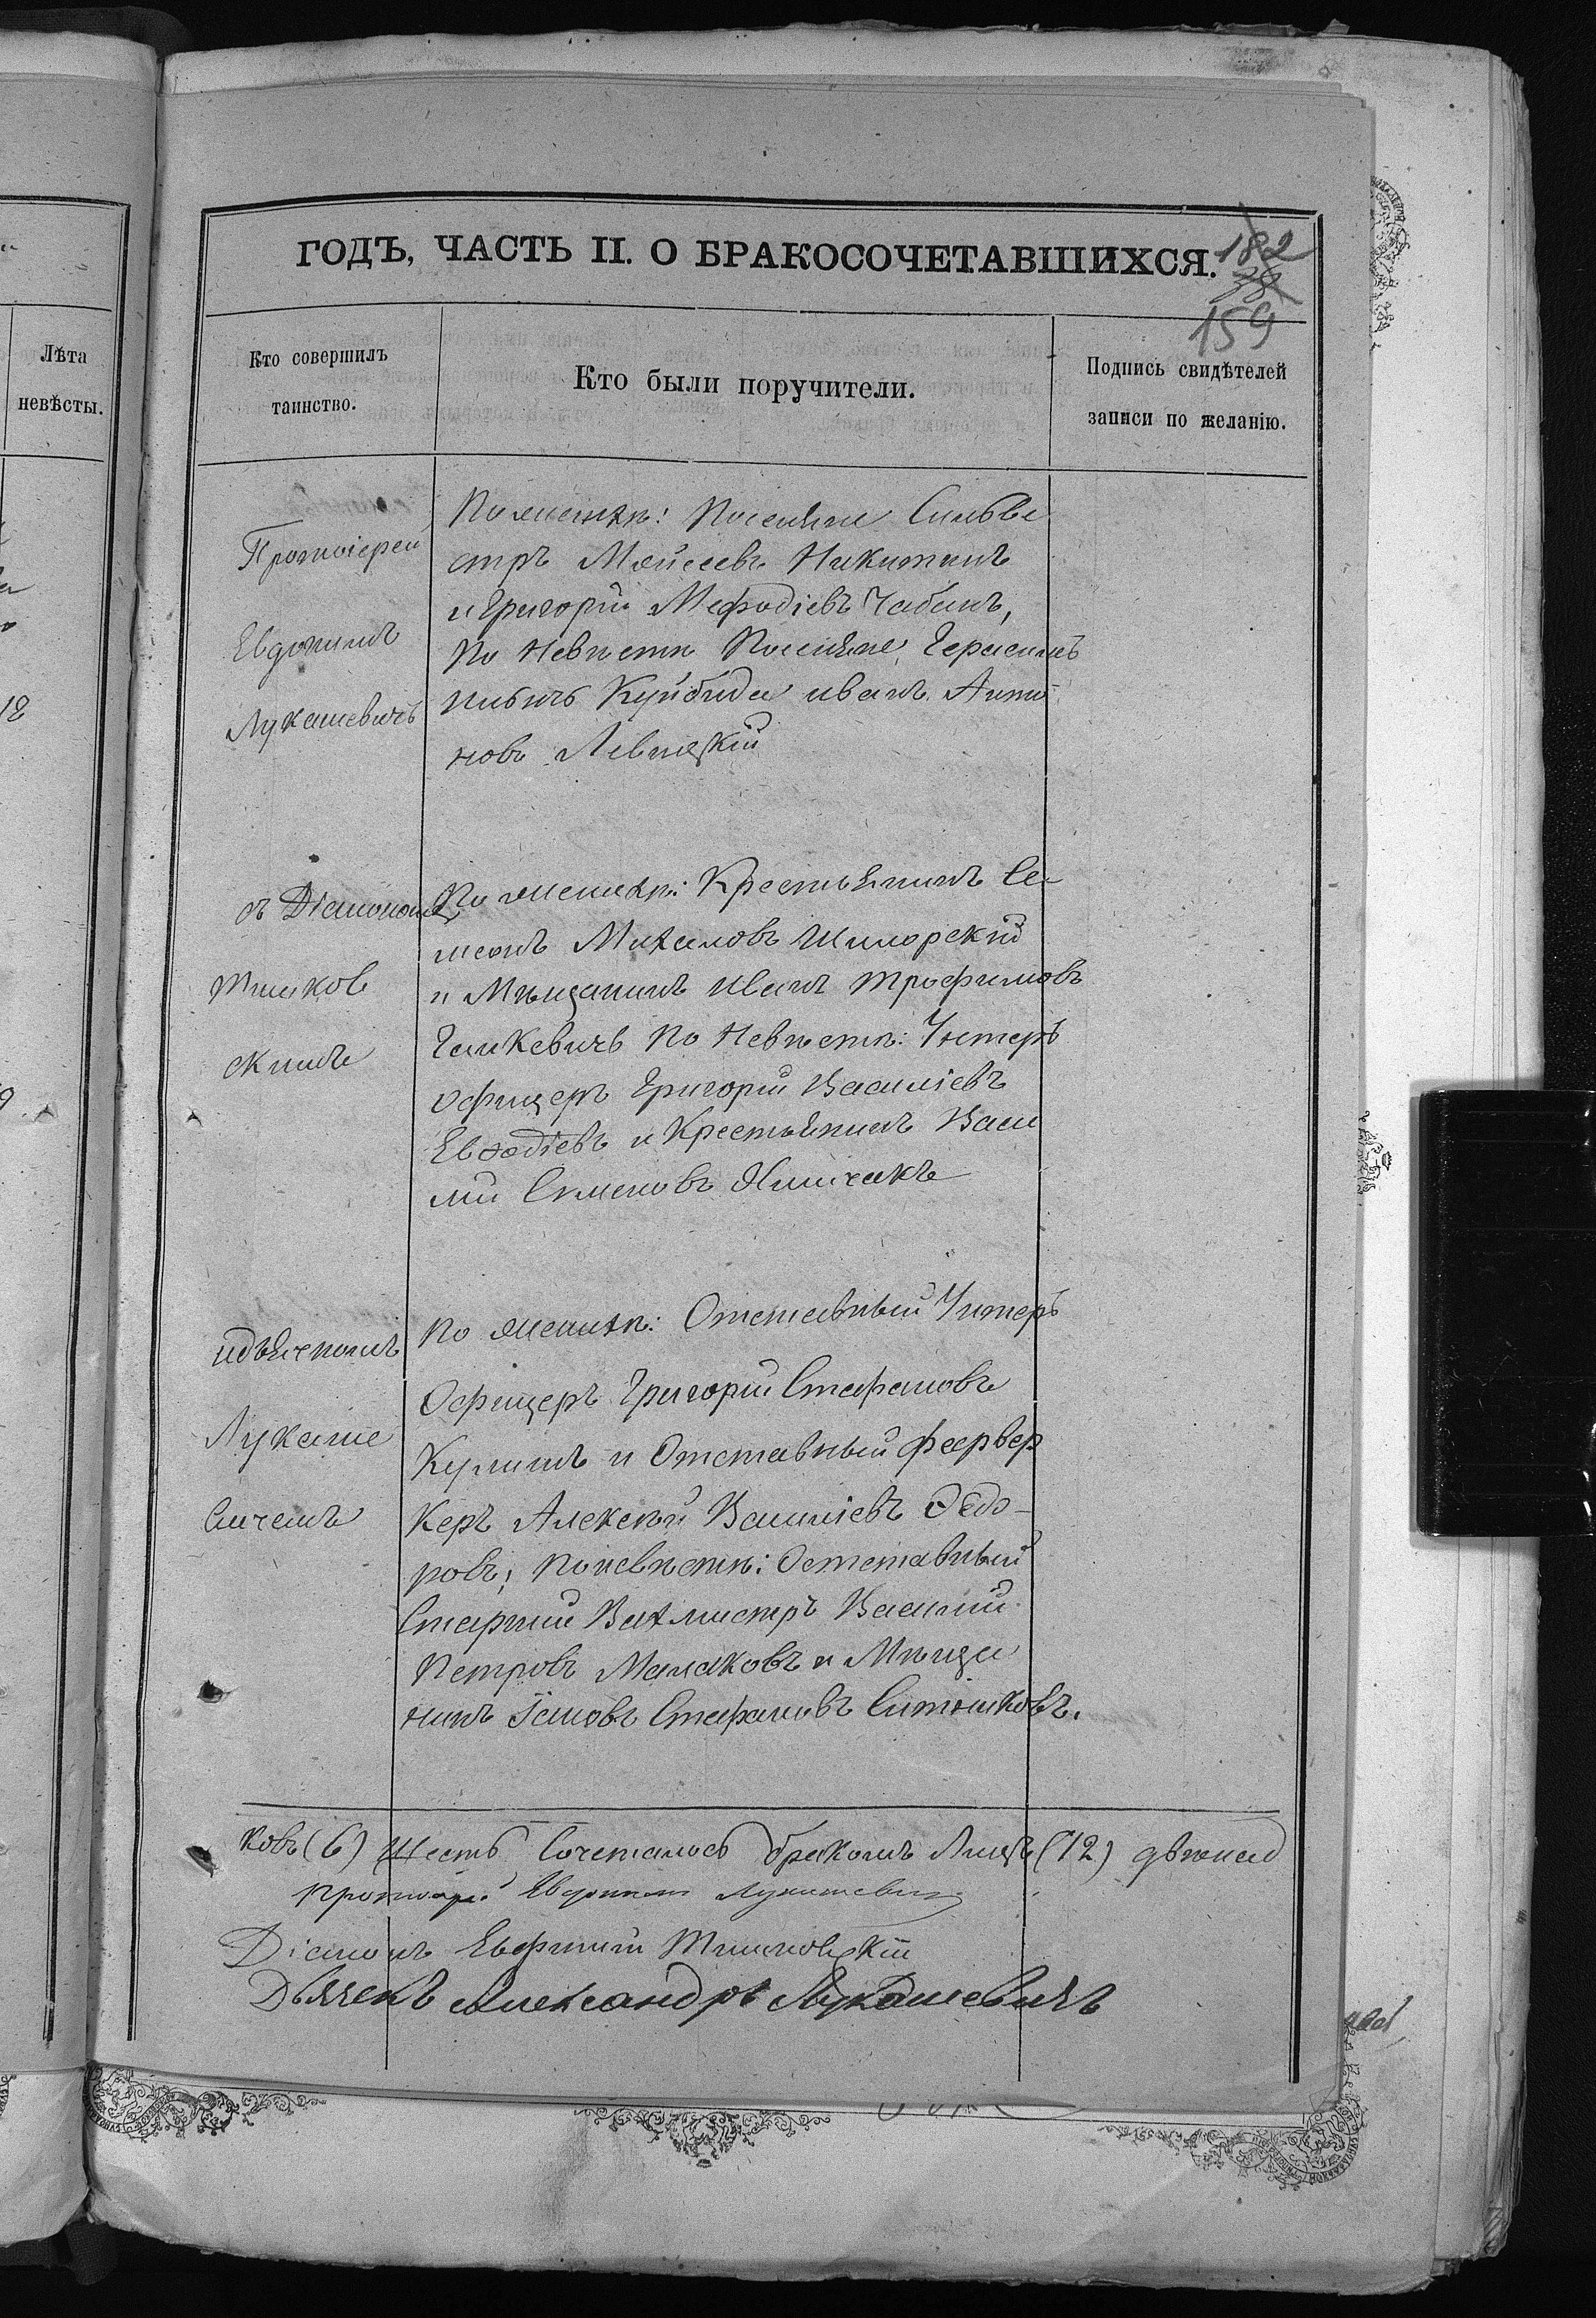 ГОДЪ, ЧАСТЬ II. О БРАКОСОЧЕТАВШИХСЯ.
182
159
Лѣта
невѣсты.
Кто совершилъ
таинство.
Кто были поручители.
Подпись свидѣтелей
записи по желанію.
12
Протоіерей
Евдокимъ
Лукашевичъ
По женихѣ: Поселяне Сильве
стръ Мойсеевъ Никитинъ
и Григорій Мефодіевъ Чабанъ,
По Невѣстѣ Поселяне Герасимъ
Куйбида Иванъ Анто
новъ Левицкій
съ Діакономъ
Тишков
скимъ
По женихѣ: Крестьянинъ Се
менъ Михаиловъ
и Мѣщанинъ Иванъ Трофимовъ
По Невѣстѣ: Унтеръ
офицеръ Григорій Василіевъ
и Крестьянинъ Васи
лій Семеновъ
и дьячкомъ
Лукаше
вичемъ
По женихѣ: Отставный Унтеръ
Офицеръ Григорій Стефановъ
и Отставный феервер
керъ Алексѣй Василіевъ Ѳедо-
ровъ; По невѣстѣ: Отставный
Старший Вахмистръ Василий
Петровъ Малаковъ и Мѣща
нинъ Стефановъ
ковъ (6) Шесть Сочеталось бракомъ Лицъ (12) двѣнад
Протоіерей Евдокимъ Лукашевичъ
Діаконъ Евфимій Тишковскій
Дьячекъ Александръ Лукашевичъ